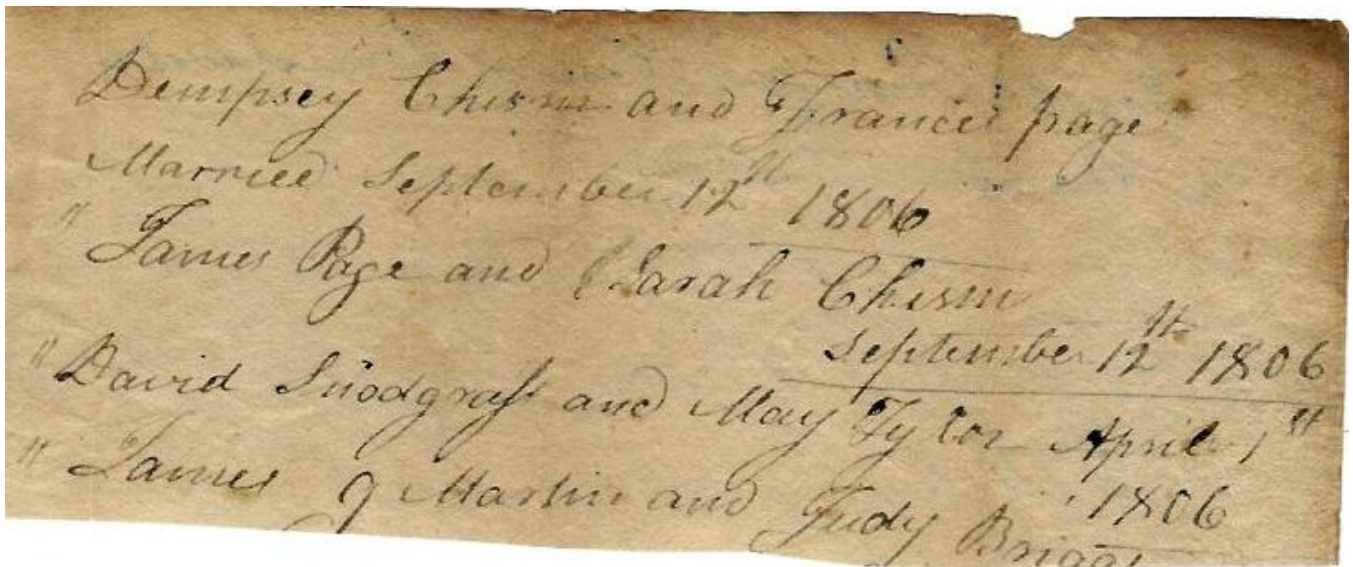 Dempsey Chism and Francis page
Married September 12th 1806
" James Page and Sarah Chism
September 12th 1806
" David Snodgrass and May Tylor April 1st
1806
" James J Martin and Judy Briggs